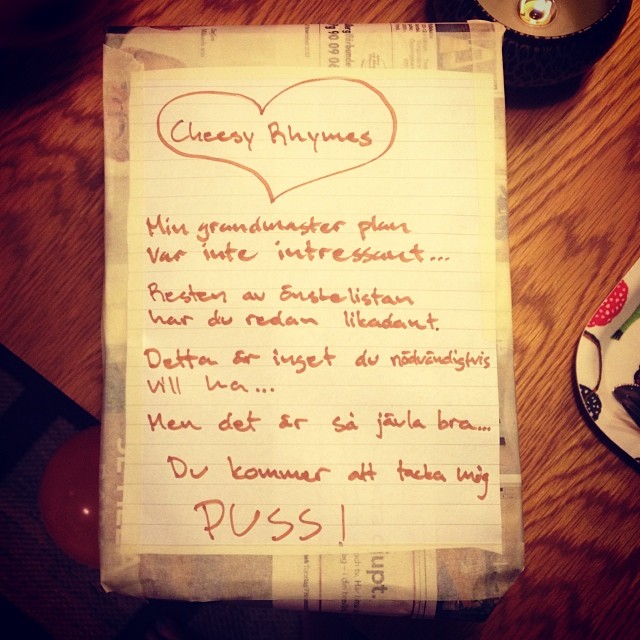 Cheesy Rhymes
Min grandmaster plan
var inte intressant...
Resten av önskelistan
har du redan likadant.
Detta är inget du nödvändigtvis
vill ha...
Men det är så jävla bra...
Du kommer att tacka mig
PUSS!